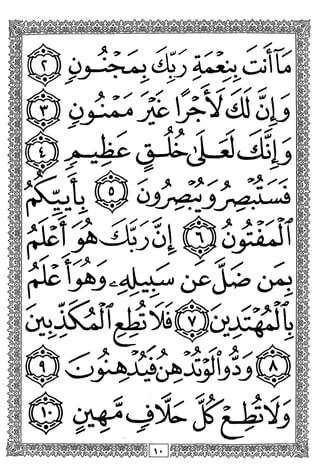 مَآ أَنتَ بِنِعْمَةِ رَبِّكَ بِمَجْنُونٍ ٢
وَإِنَّ لَكَ لَأَجْرًا غَيْرَ مَمْنُونٍ ٣
وَإِنَّكَ لَعَلَىٰ خُلُقٍ عَظِيمٍ ٤
فَسَتُبْصِرُ وَيُبْصِرُونَ ٥ بِأَييِّكُمُ
ٱلْمَفْتُونُ ٦ إِنَّ رَبَّكَ هُوَ أَعْلَمُ
بِمَن ضَلَّ عَن سَبِيلِهِۦ وَهُوَ أَعْلَمُ
بِٱلْمُهْتَدِينَ ٧ فَلَا تُطِعِ ٱلْمُكَذِّبِينَ
٨ وَدُّوا۟ لَوْ تُدْهِنُ فَيُدْهِنُونَ ٩
وَلَا تُطِعْ كُلَّ حَلَّافٍ مَّهِينٍ ١٠
١٠